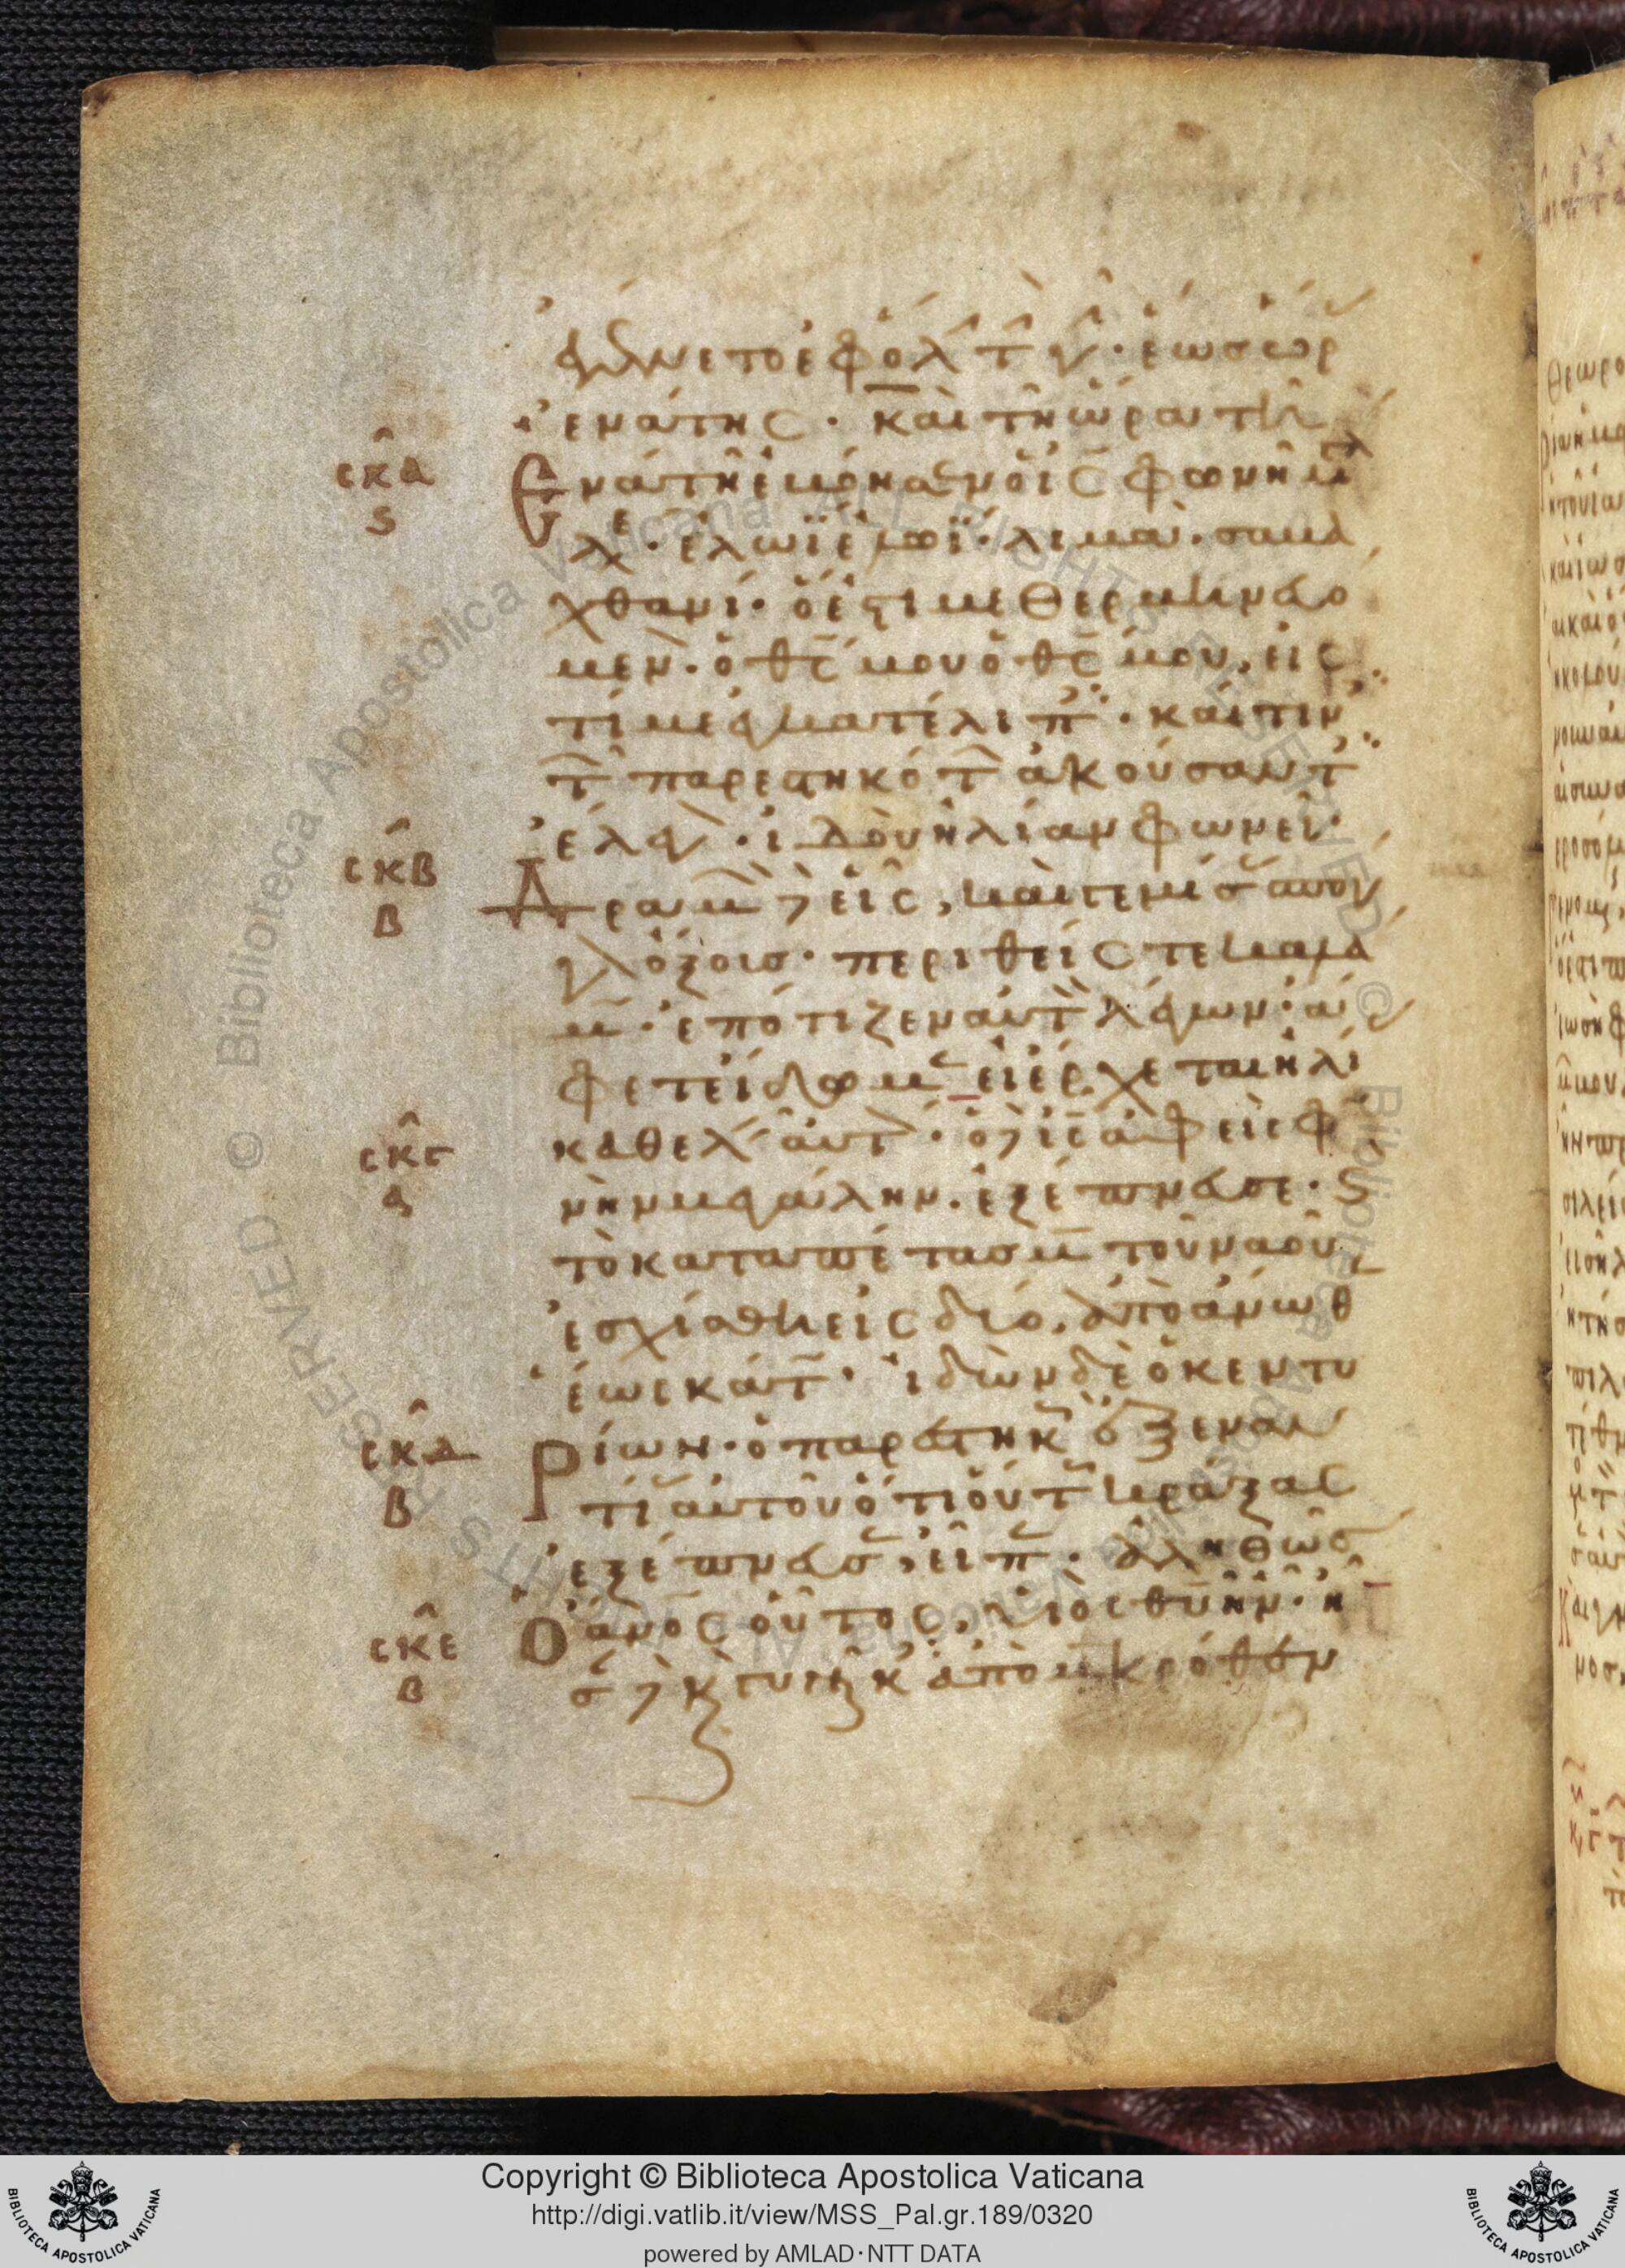 ἐγένετο ἐφ ὅλ τ γ · ἕως ὡρ
ἐνάτης · καὶ τῆ ὥρα τῆ
σκα
ς
Ενάτη ἐβόησεν ὁ ις φωνῆ μ
λ · ἐλωῒ ἐλωῒ · λιμα · σαβα
χθανι · ὅ ἐστι μεθερμηνευό
μεν · ὁ θς μου ὁ θς μου, εἰς
τί με ἐγκατέλιπ · καί τιν
τ παρεστηκότ ἀκούσαντ
ἔλεγ · ἰδοὺ ἠλίαν φωνεῖ ·
σκβ
β
Δραμ δ εἷς, καὶ γεμίσ σπόγ
γ ὄξους · περιθεὶς τε καλά
μ · ἐπότιζεν αὐτ λέγων · ἄ
φετε ἴδωμ εἰ ἔρχεται ἠλί
σκγ
α
καθελ αὐτ · ὁ δ ις ἀφεὶς φ
νὴν μεγάλην · ἐξέπνευσε · ς
τὸ καταπέτασμ τοῦ ναοῦ
ἐσχίσθη εἰς δύο, ἀπὸ ἄνωθ
ἕως κάτ · ἰδὼν δὲ ὁ κεντυ
σκδ
β
Ρίων · ὁ παρεστηκ ἐξ εναν
τί αὐτοῦ ὅτι οὕτ κράξας
ἐξέπνευσ, εἶπ · ἀληθῶς
σκε
β
Ὁ ἄνος οὗτος, υἱὸς θυ ἦν · ἦ
σ δ κ γυναῖκ ἀπὸ μακρόθεν
Copyright © Biblioteca Apostolica Vaticana
http://digi.vatlib.it/view/MSS_Pal.gr.189/0320
powered by AMLAD · NTT DATA